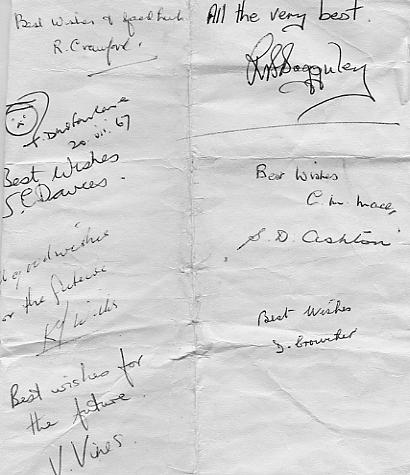 Best Wishes & good luck
R. Crawford.
20.vii.67
Best Wishes
S. E. Davies.
good wishes
or the future
Best wishes for
the future.
V. Vines.
All the very best.
Best Wishes
C. M. Mace,
S. D. Ashton
Best Wishes